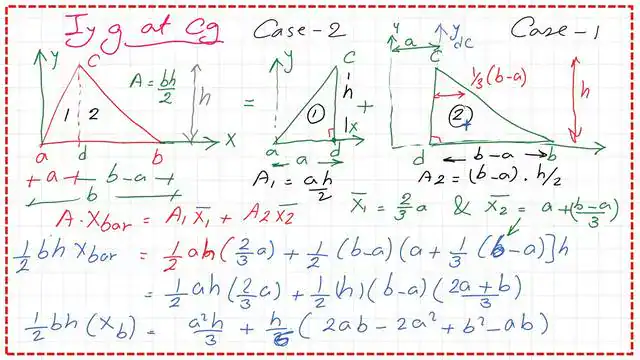 Iy g at Cg
Case-2
Case-1
y
C
A = bh/2
h
1
2
a
d
b
x
a
b-a
b
=
y
C
1
h
a
d
x
a
A1 = ah/2
+
y
a
y
dc
C
1/3(b-a)
2
h
d
b
b-a
A2 = (b-a) · h/2
A·Xbar = A1 x̄1 + A2 x̄2
x̄1 = 2/3 a & x̄2 = a + (b-a)/3
1/2 bh Xbar = 1/2 ah (2/3 a) + 1/2 (b-a) (a + 1/3 (b-a)] h
= 1/2 ah (2/3 a) + 1/2 (h) (b-a) (2a+b)/3
1/2 bh (xb) = a²h/3 + h/6 (2ab - 2a² + b² - ab)